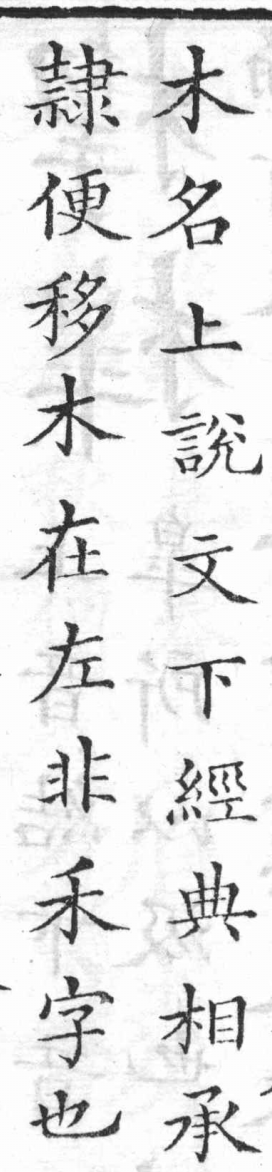 木名上說文下經典相承
隸便移木在左非禾字也